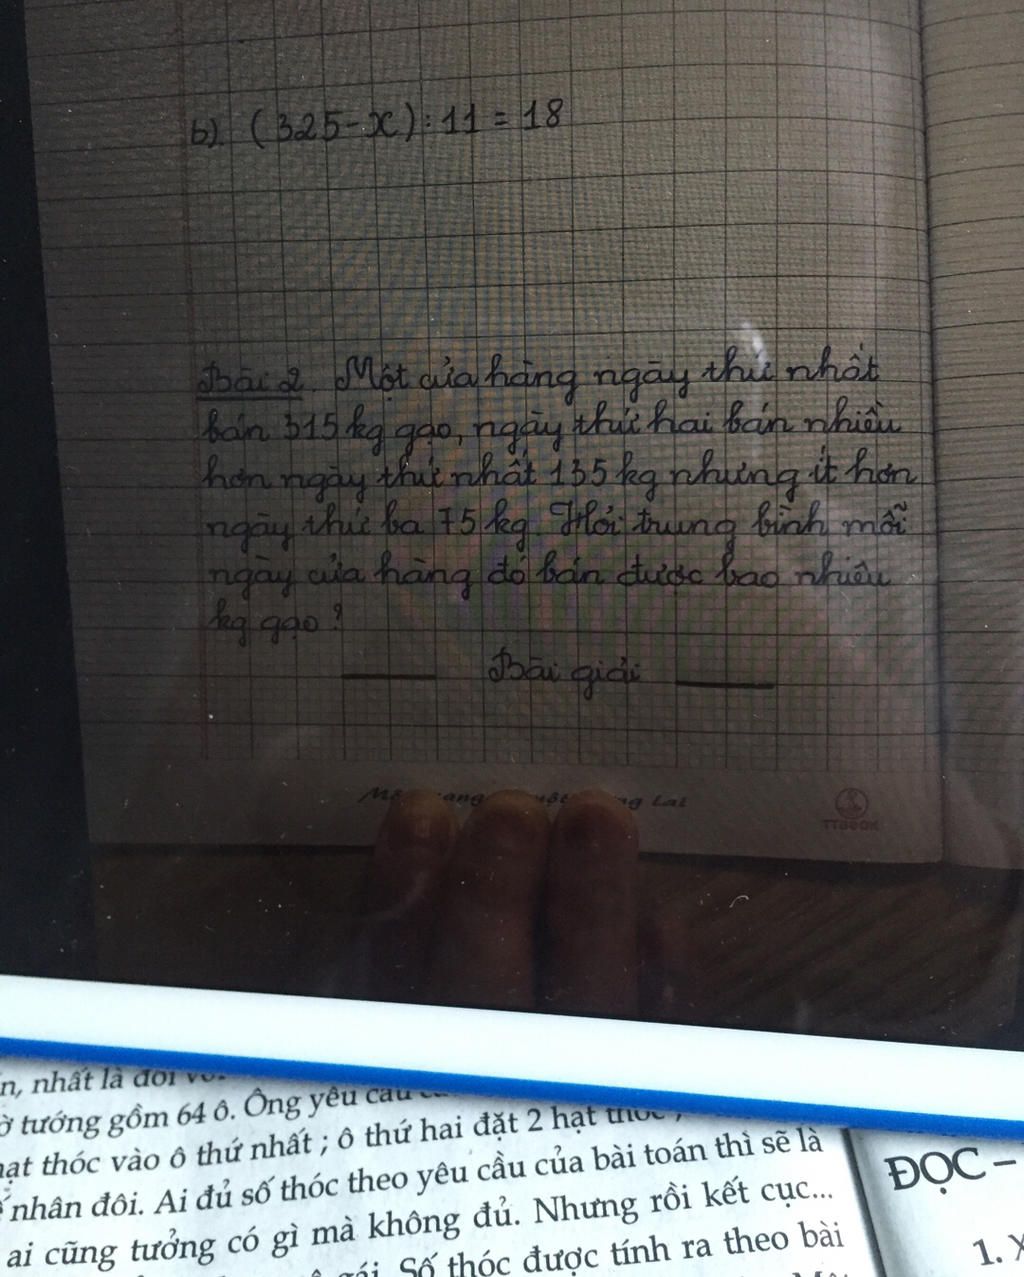 b) (325-x) : 11 = 18
Bài 2. Một cửa hàng ngày thứ nhất
bán 315 kg gạo, ngày thứ hai bán nhiều
hơn ngày thứ nhất 135 kg nhưng ít hơn
ngày thứ ba 75 kg. Hỏi trung bình mỗi
ngày cửa hàng đó bán được bao nhiêu
kg gạo?
Bài giải
TTBOOK
n, nhất là đối
ờ tướng gồm 64 ô. Ông yêu cầu
hạt thóc vào ô thứ nhất ; ô thứ hai đặt 2 hạt thóc ,
nhân đôi. Ai đủ số thóc theo yêu cầu của bài toán thì sẽ là
ai cũng tưởng có gì mà không đủ. Nhưng rồi kết cục...
gái. Số thóc được tính ra theo bài
ĐỌC –
1. X